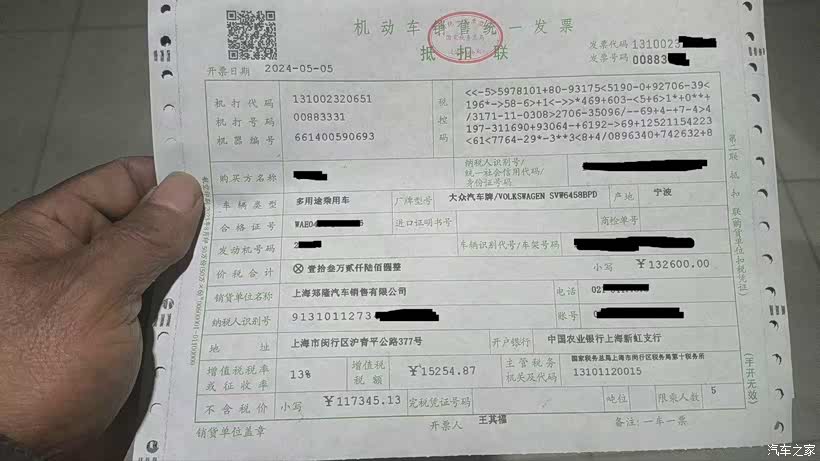 机动车销售统一发票
抵扣联
发票代码 1310023
发票号码 00883
开票日期 2024-05-05
机打代码 131002320651
机打号码 00883331
机器编号 661400590693
税控码
<<-5>5978101+80-93175<5190-0+92706-39<
196*->58-6>+1<->>*469+603-<5+6>1*+0**+
/3171-11-0308>2706-35096/--69+4-+7-4>4
197-311690+93064-+6192->69+12521154223
<61<7764-29*-3**3<8+4/0896340+742632+8
购买方名称
纳税人识别号/统一社会信用代码/身份证号码
车辆类型 多用途乘用车 厂牌型号 大众汽车牌/VOLKSWAGEN SVW6458BPD 产地 宁波
合格证号 WAE04 进口证明书号 商检单号
发动机号码 2 车辆识别代号/车架号码
价税合计 ⊗壹拾叁万贰仟陆佰圆整 小写 ¥132600.00
销货单位名称 上海郑隆汽车销售有限公司 电话 021
纳税人识别号 9131011273 账号
地址 上海市闵行区沪青平公路377号 开户银行 中国农业银行上海新虹支行
增值税税率或征收率 13% 增值税税额 ¥15254.87 主管税务机关及代码 国家税务总局上海市闵行区税务局第十税务所
13101120015
不含税价 小写 ¥117345.13 完税凭证号码 吨位 限乘人数 5
销货单位盖章 开票人 王其福 备注:一车一票
第二联 抵扣联(购货单位扣税凭证)
(手开无效)
汽车之家